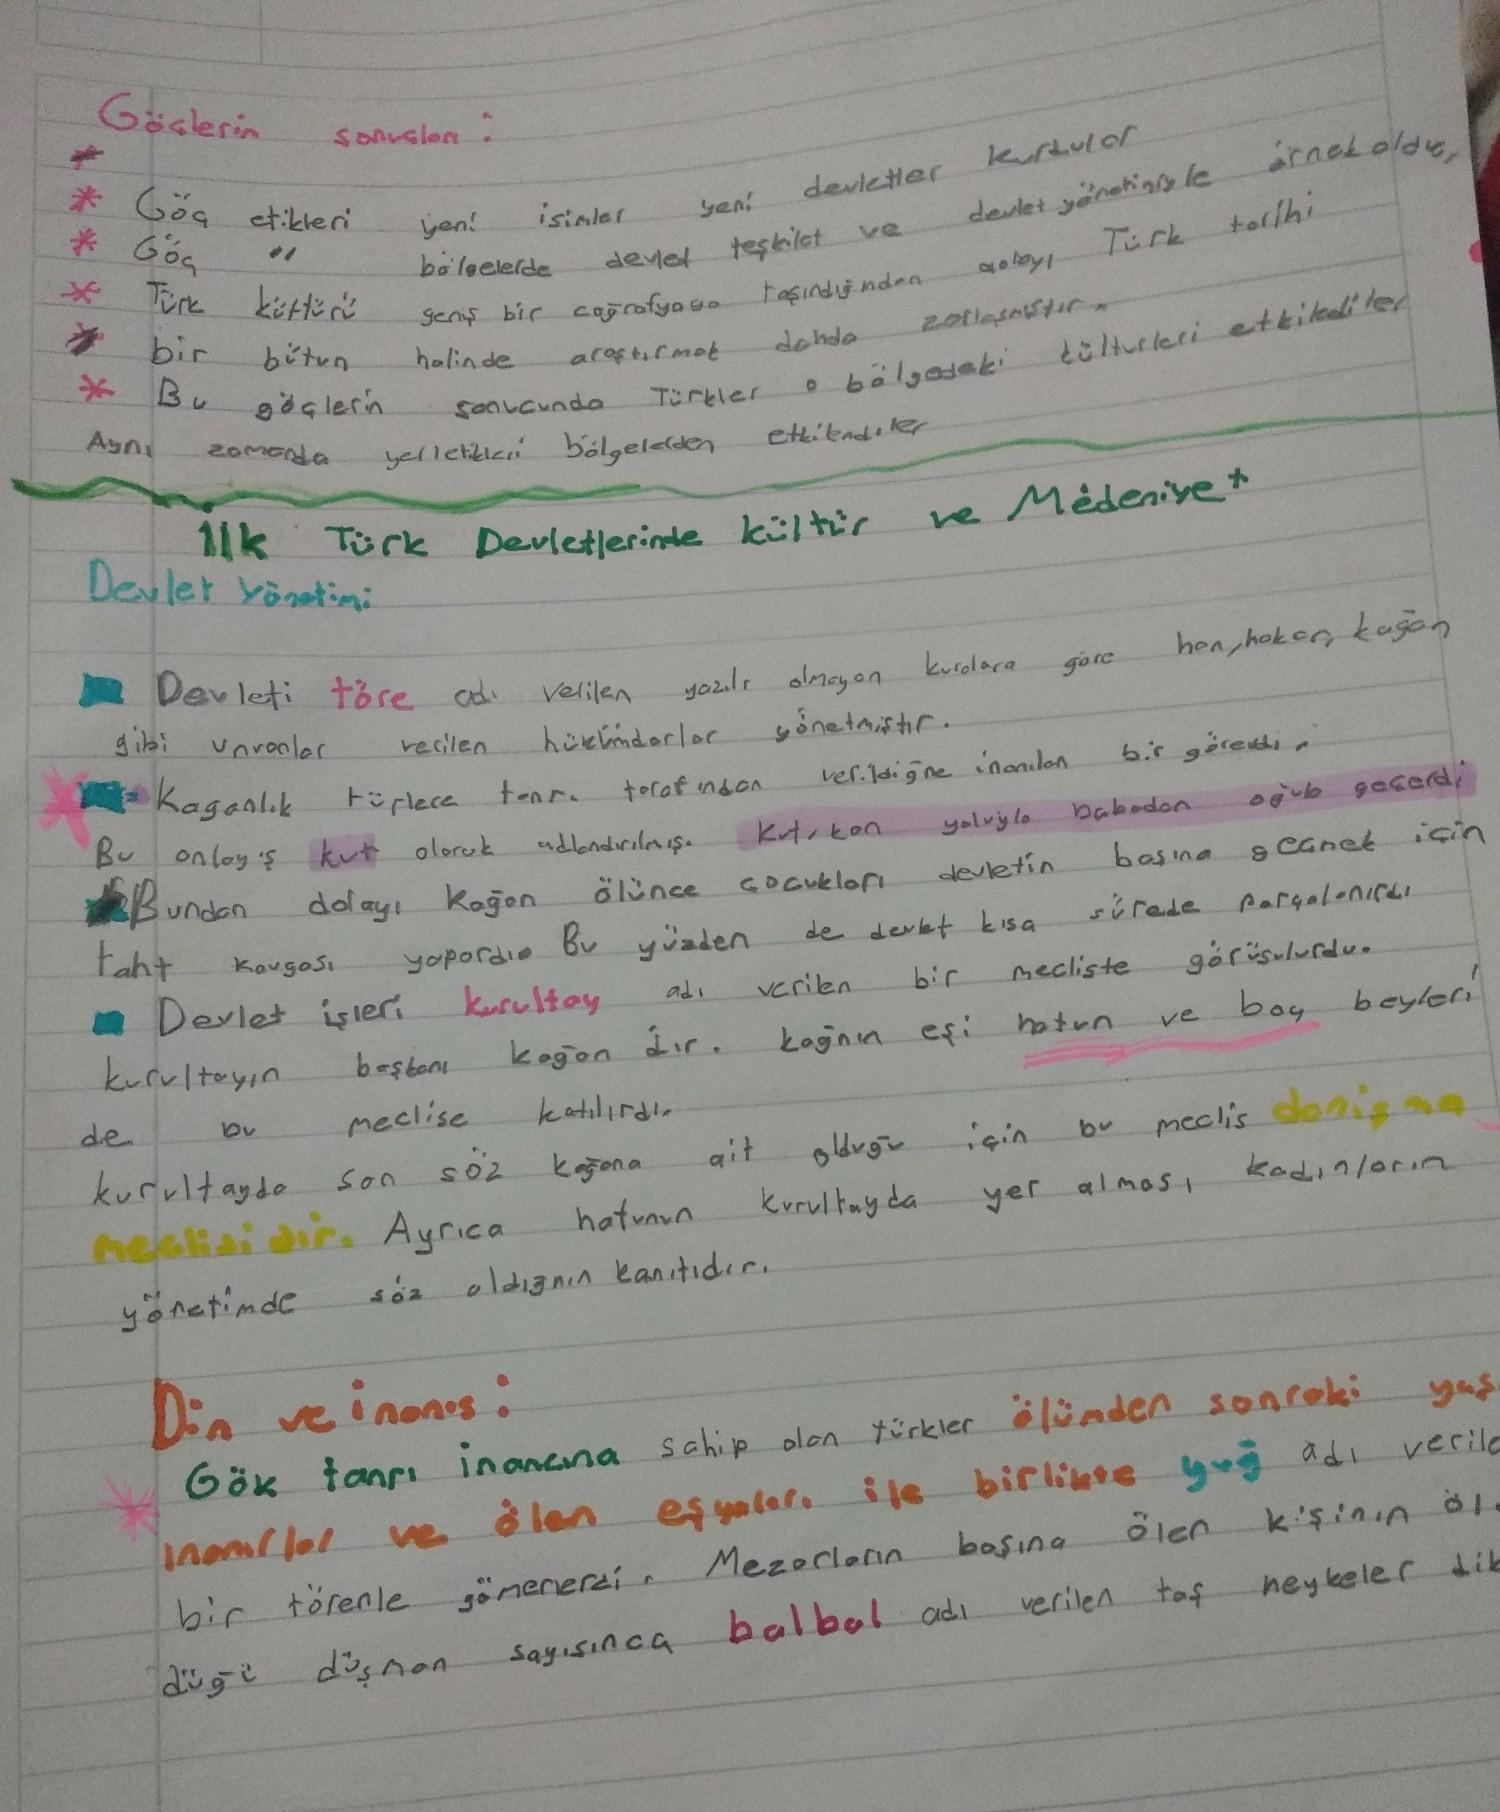 Göçlerin sonuçları :
* Göç etikleri yeni isimler yeni devletler kurdular
* Göç " bölgelerde devlet teşkilat ve devlet yönetimiyle örnek oldu,
* Türk kültürü geniş bir coğrafyaya taşındığından dolayı Türk tarihi
bir bütün halinde araştırmak daha zorlaşmıştır.
* Bu göçlerin sonucunda Türkler o bölgedeki kültürleri etkilediler
Aynı zamanda yerletikleri bölgelerden etkilendiler
İlk Türk Devletlerinde kültür ve Medeniyet
Devlet Yönetimi
Devleti töre adı verilen yazılı olmayan kurallara göre han, hakan, kağan
gibi unvanlar verilen hükümdarlar yönetmiştir.
Kaganlık tanrı tarafından verildiğne inanılan bir görevdi.
Bu anlayış kut olarak adlandırılmış. Kut, kan yoluyla babadan oğub geçerdi
Bundan dolayı Kağan ölünce çocukları devletin başına geçmek için
taht kavgası yapardı. Bu yüzden de devlet kısa sürede parçalanırdı
Devlet işleri kurultay adı verilen bir mecliste görüşülurdu.
kurultayın başkanı kağan dır. kağnın eşi hatun ve boy beyleri
de bu meclise katılırdı.
kurultayda son söz kağana ait olduğu için bu meclis danışma
meclisidir. Ayrıca hatunun kurultayda yer alması kadınların
yönetimde söz aldığnın kanıtıdır.
Din ve inanış :
Gök tanrı inancına sahip olan türkler ölümden sonraki yaş
inanırlar ve ölen eşyaları ile birlikte yuğ adı verile
bir törenle gömererdi. Mezarların başına ölen kişinin öl
düğü düşman sayısınca balbal adı verilen taş heykeler dik